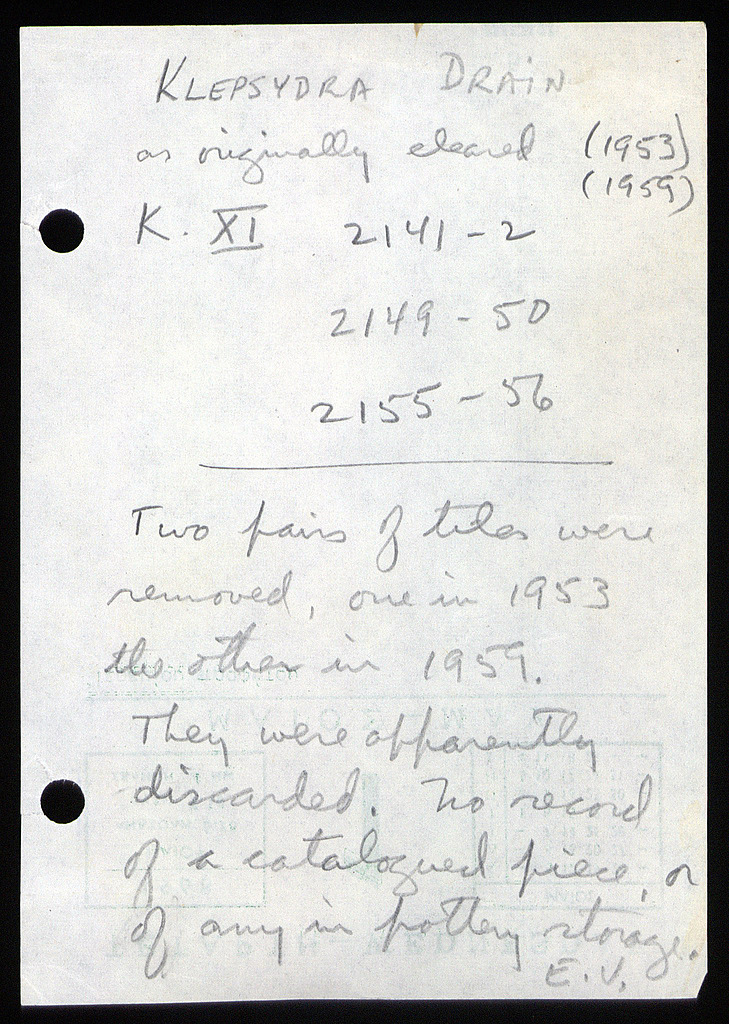 KLEPSYDRA DRAIN
as originally cleared (1953)
(1959)
K. XI 2141-2
2149-50
2155-56
Two pairs of tiles were
removed, one in 1953
the other in 1959.
They were apparently
discarded. No record
of a catalogued piece, or
of any in pottery storage.
E.V.